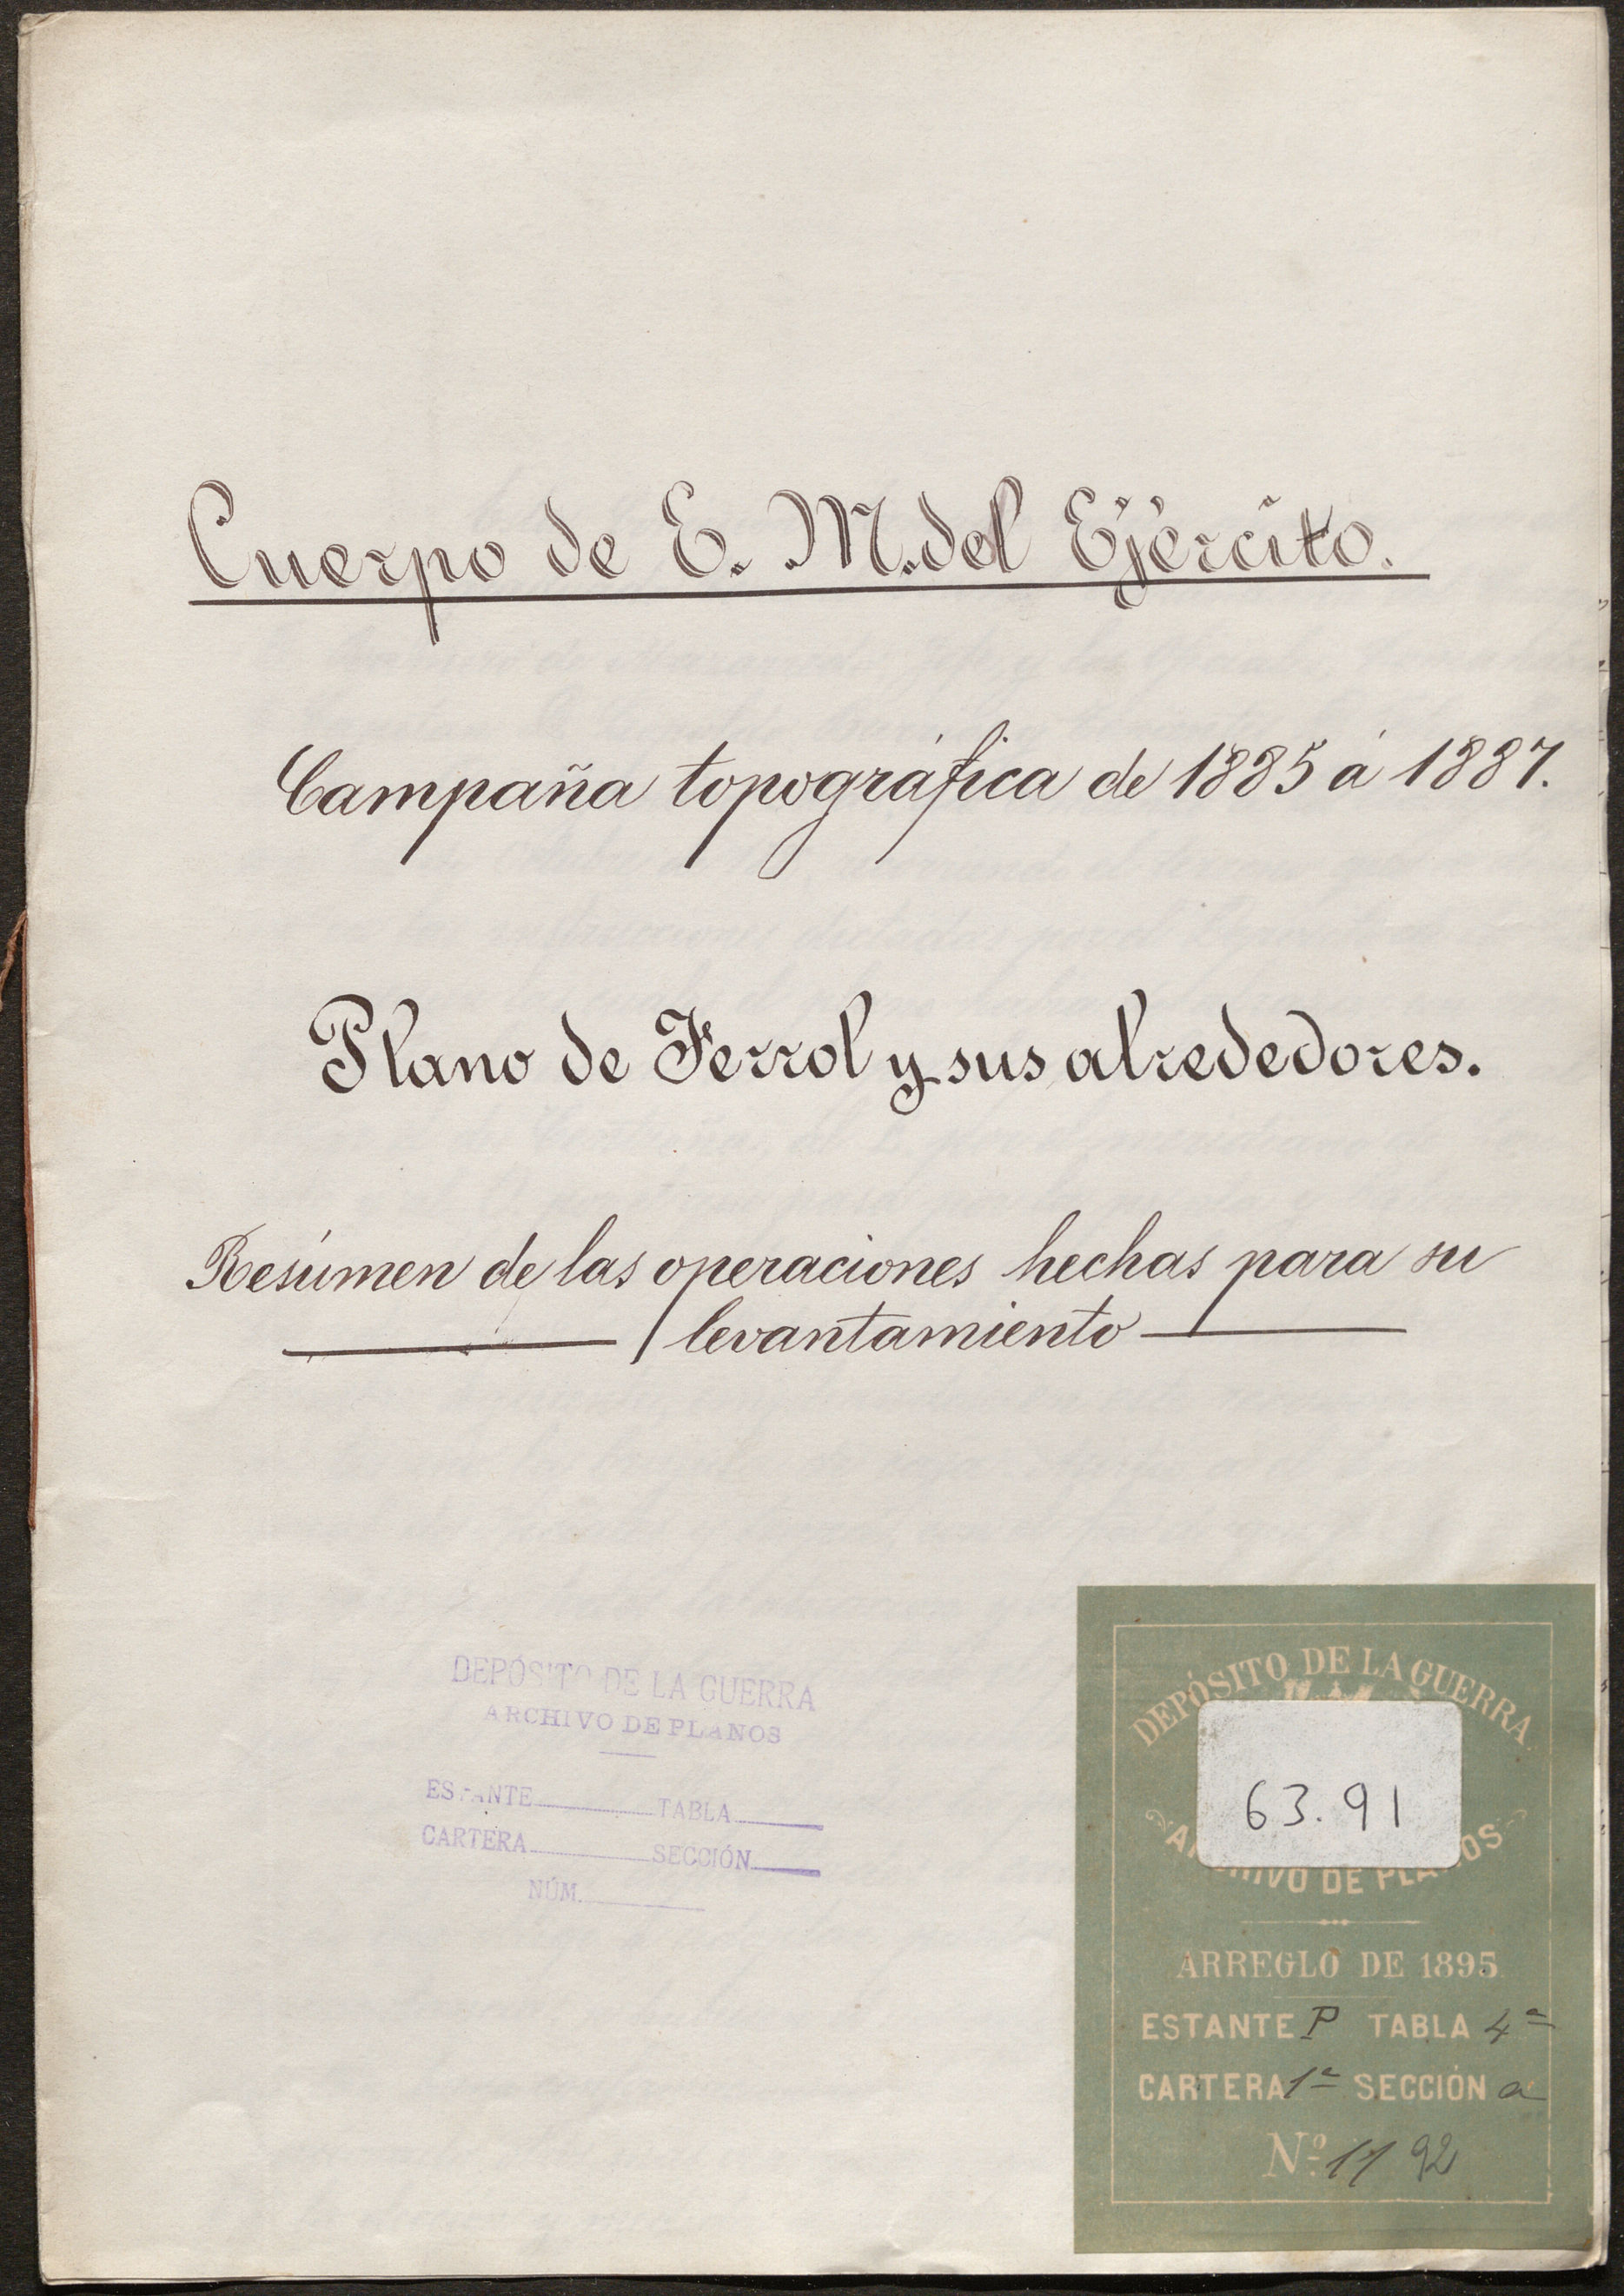 Cuerpo de E. M. del Ejército.
Campaña topográfica de 1885 á 1887.
Plano de Ferrol y sus alrededores.
Resúmen de las operaciones hechas para su
levantamiento
DEPÓSITO DE LA GUERRA
ARCHIVO DE PLANOS
ESTANTE TABLA
CARTERA SECCIÓN
NÚM.
DEPÓSITO DE LA GUERRA
63.91
ARCHIVO DE PLANOS
ARREGLO DE 1895
ESTANTE P TABLA 4ª
CARTERA 1ª SECCIÓN a
Nº 92